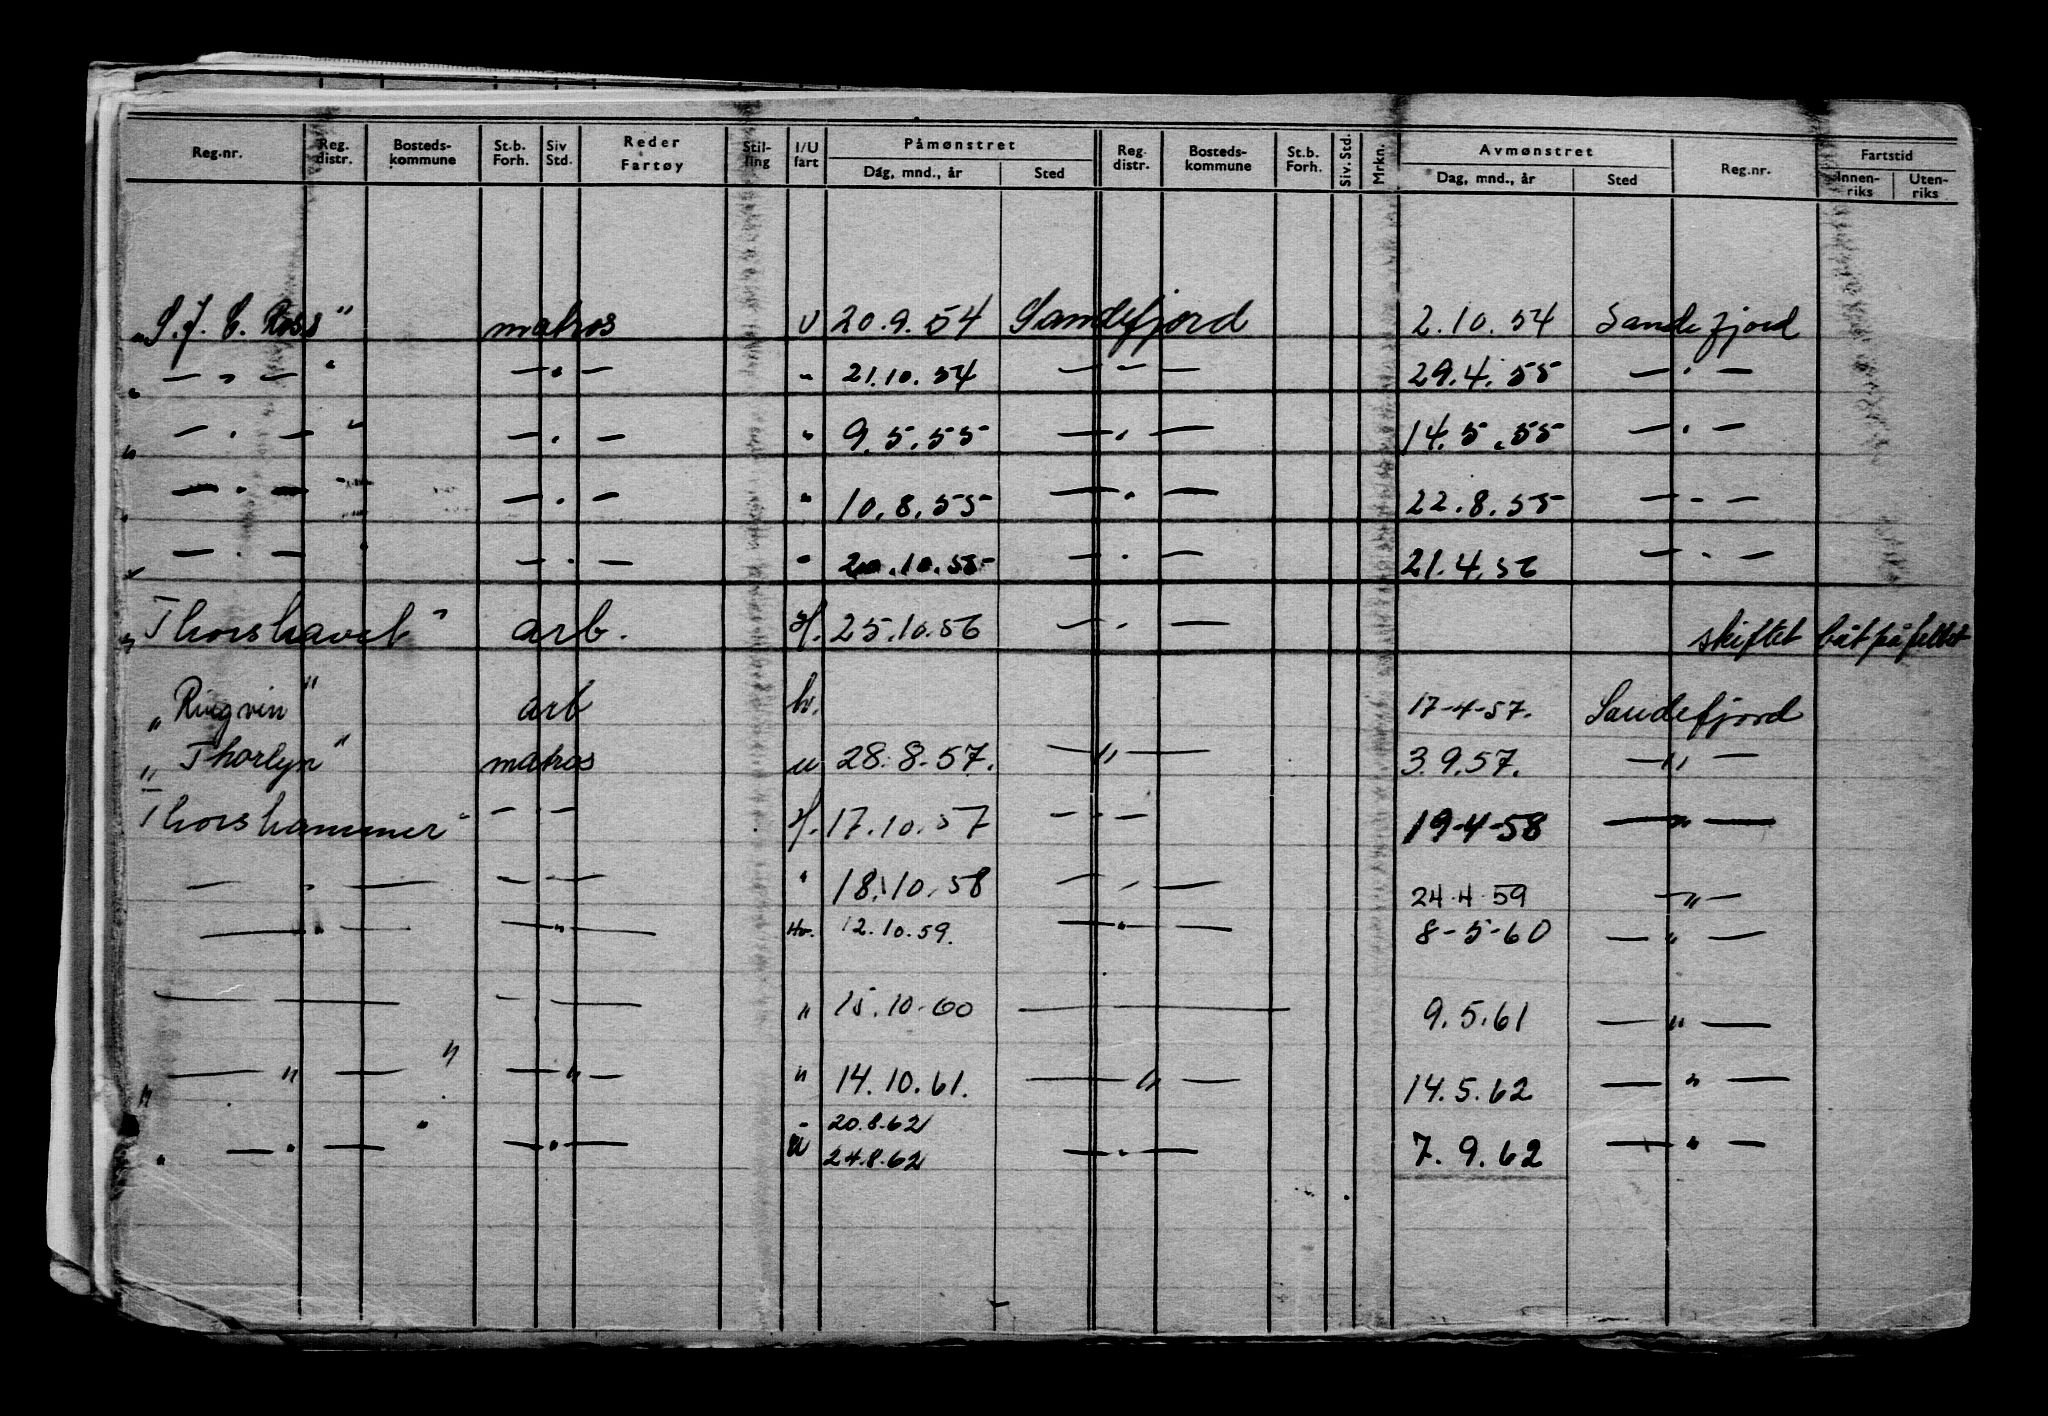 Reg.nr. Reg. distr. Bosteds-kommune St.b. Forh. Siv Std. Reder Fartøy Stil-ling I/U fart Påmønstret Dag, mnd., år Sted Reg. distr. Bosteds-kommune St.b. Forh. Siv. Std. Mrkn. Avmønstret Dag, mnd., år Sted Reg.nr. Fartstid Innen-riks Uten-riks
„S. J. C. Ross" matros U 20.9.54 Sandefjord 2.10.54 Sandefjord
„ — " — " — " — " 21.10.54 — " — 29.4.55 — " —
„ — " — " — " — " 9.5.55 — " — 14.5.55 — " —
„ — " — " — " — " 10.8.55 — " — 22.8.55 — " —
„ — " — " — " — " 20.10.55 — " — 21.4.56 — " —
„Thorshavet" arb. Hf. 25.10.56 — " — skiftet båt på feltet
„Ringvin" arb hv. 17-4-57. Sandefjord
„Thorlyn" matros u 28.8.57. — " — 3.9.57. — " —
Thorshammer" — " — Hf. 17.10.57 — " — 19-4-58 — " —
— " — — " — " 18.10.58 — " — 24.4.59 — " —
— " — — " — Hv. 12.10.59. — " — 8-5-60 — " —
— — — — " 15.10.60 — 9.5.61 — " —
„ — " — " — " — " 14.10.61. — " — 14.5.62 — " —
20.8.62
„ — " — " — " — U 24.8.62 — " — 7.9.62 — " —